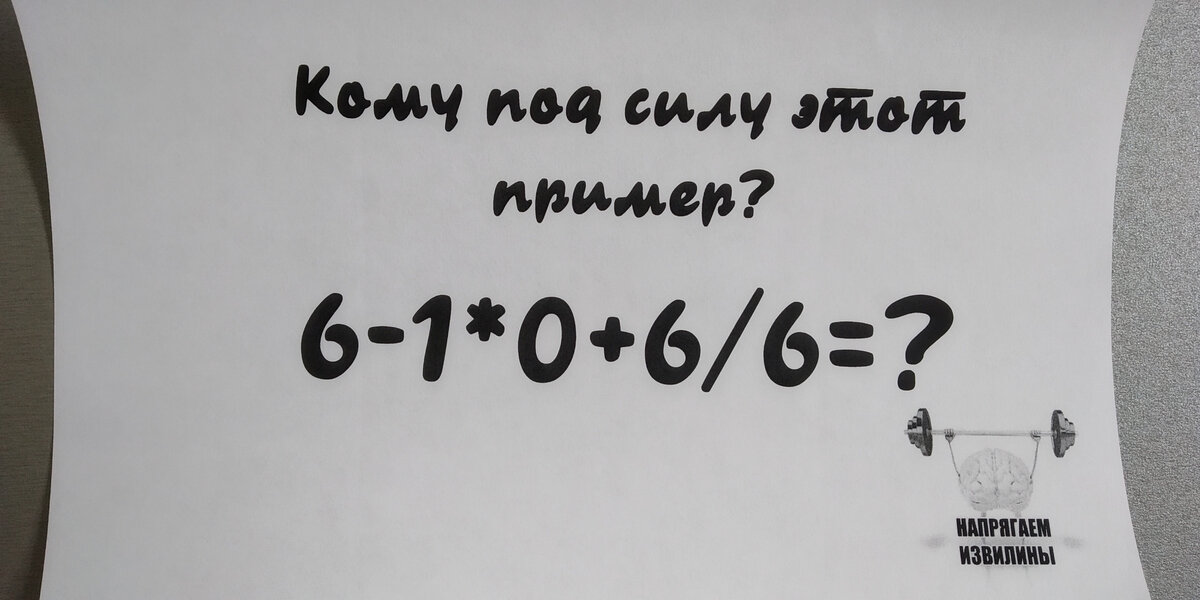 Кому под силу этот
пример?
6-1*0+6/6=?
НАПРЯГАЕМ
ИЗВИЛИНЫ